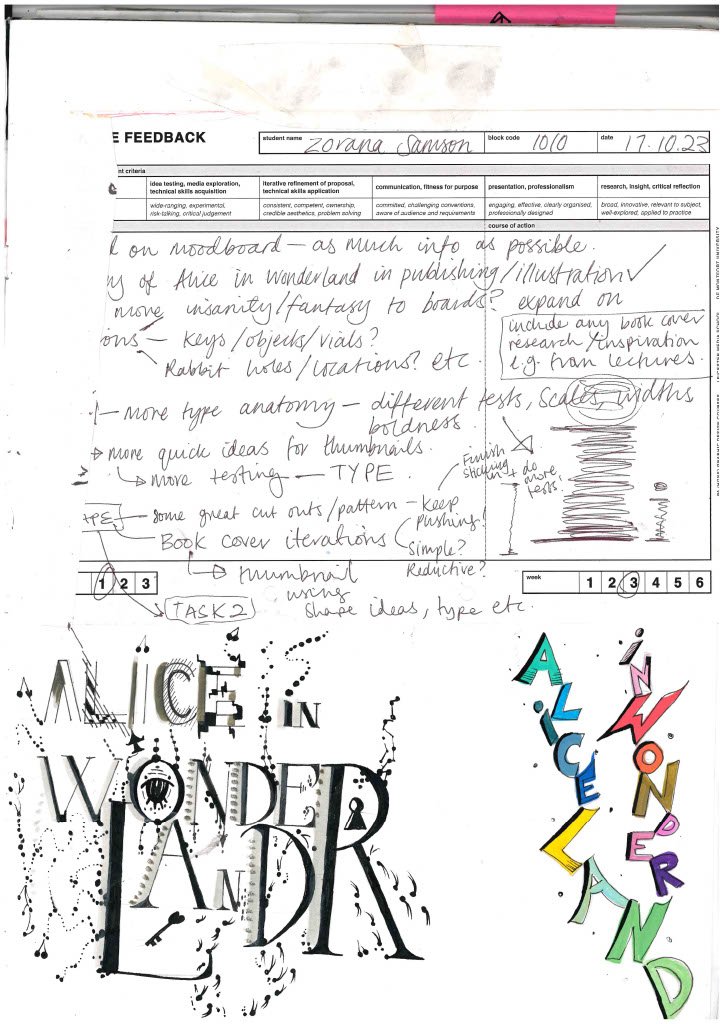 E FEEDBACK
student name Zorana Samson block code 1010 date 17.10.23
nt criteria
idea testing, media exploration, technical skills acquisition
iterative refinement of proposal, technical skills application
communication, fitness for purpose
presentation, professionalism
research, insight, critical reflection
wide-ranging, experimental, risk-talking, critical judgement
consistent, competent, ownership, credible aesthetics, problem solving
committed, challenging conventions, aware of audience and requirements
engaging, effective, clearly organised, professionally designed
broad, innovative, relevant to subject, well-explored, applied to practice
course of action
on moodboard — as much info as possible.
y of Alice in Wonderland in publishing/illustration ✓
more insanity/fantasy to boards? expand on
ons — keys/objects/vials?
Rabbit holes/locations? etc.
include any book cover
research/inspiration
e.g. from lectures.
— more type anatomy — different tests, scales, widths
boldness
more quick ideas for thumbnails.
more testing — TYPE.
Finish
sticking
in + do
more
tests.
some great cut outs/pattern — keep
pushing!
Book cover iterations
Simple?
Reductive?
thumbnail
using
shape ideas, type etc.
TASK 2
1 2 3
week 1 2 3 4 5 6
ALICE IN
WONDER
LAND
ALICE
IN WONDER
LAND